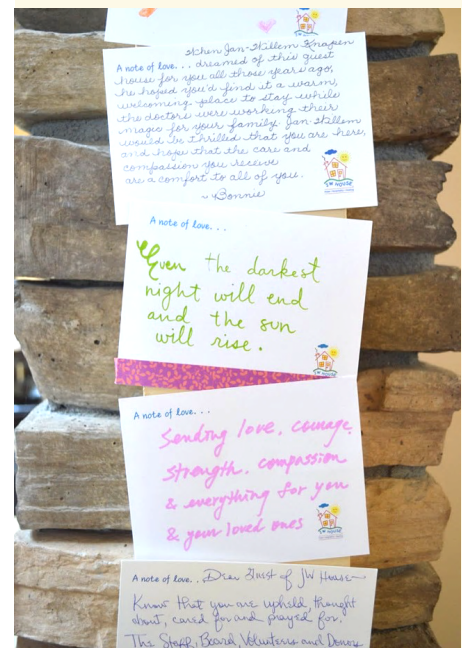 When Jan-Willem Knapen
A note of love... dreamed of this guest
house for you all those years ago,
he hoped you'd find it a warm,
welcoming place to stay while
the doctors were working their
magic for your family. Jan-Willem
would be thrilled that you are here,
and hope that the care and
compassion you receive
are a comfort to all of you.
~ Bonnie
JW HOUSE
A note of love...
Even the darkest
night will end
and the sun
will rise.
JW HOUSE
A note of love...
Sending love, courage,
strength, compassion
& everything for you
& your loved ones
JW HOUSE
A note of love... Dear Guest of JW House—
Know that you are upheld, thought
about, cared for and prayed for.
The Staff, Board, Volunteers and Donors